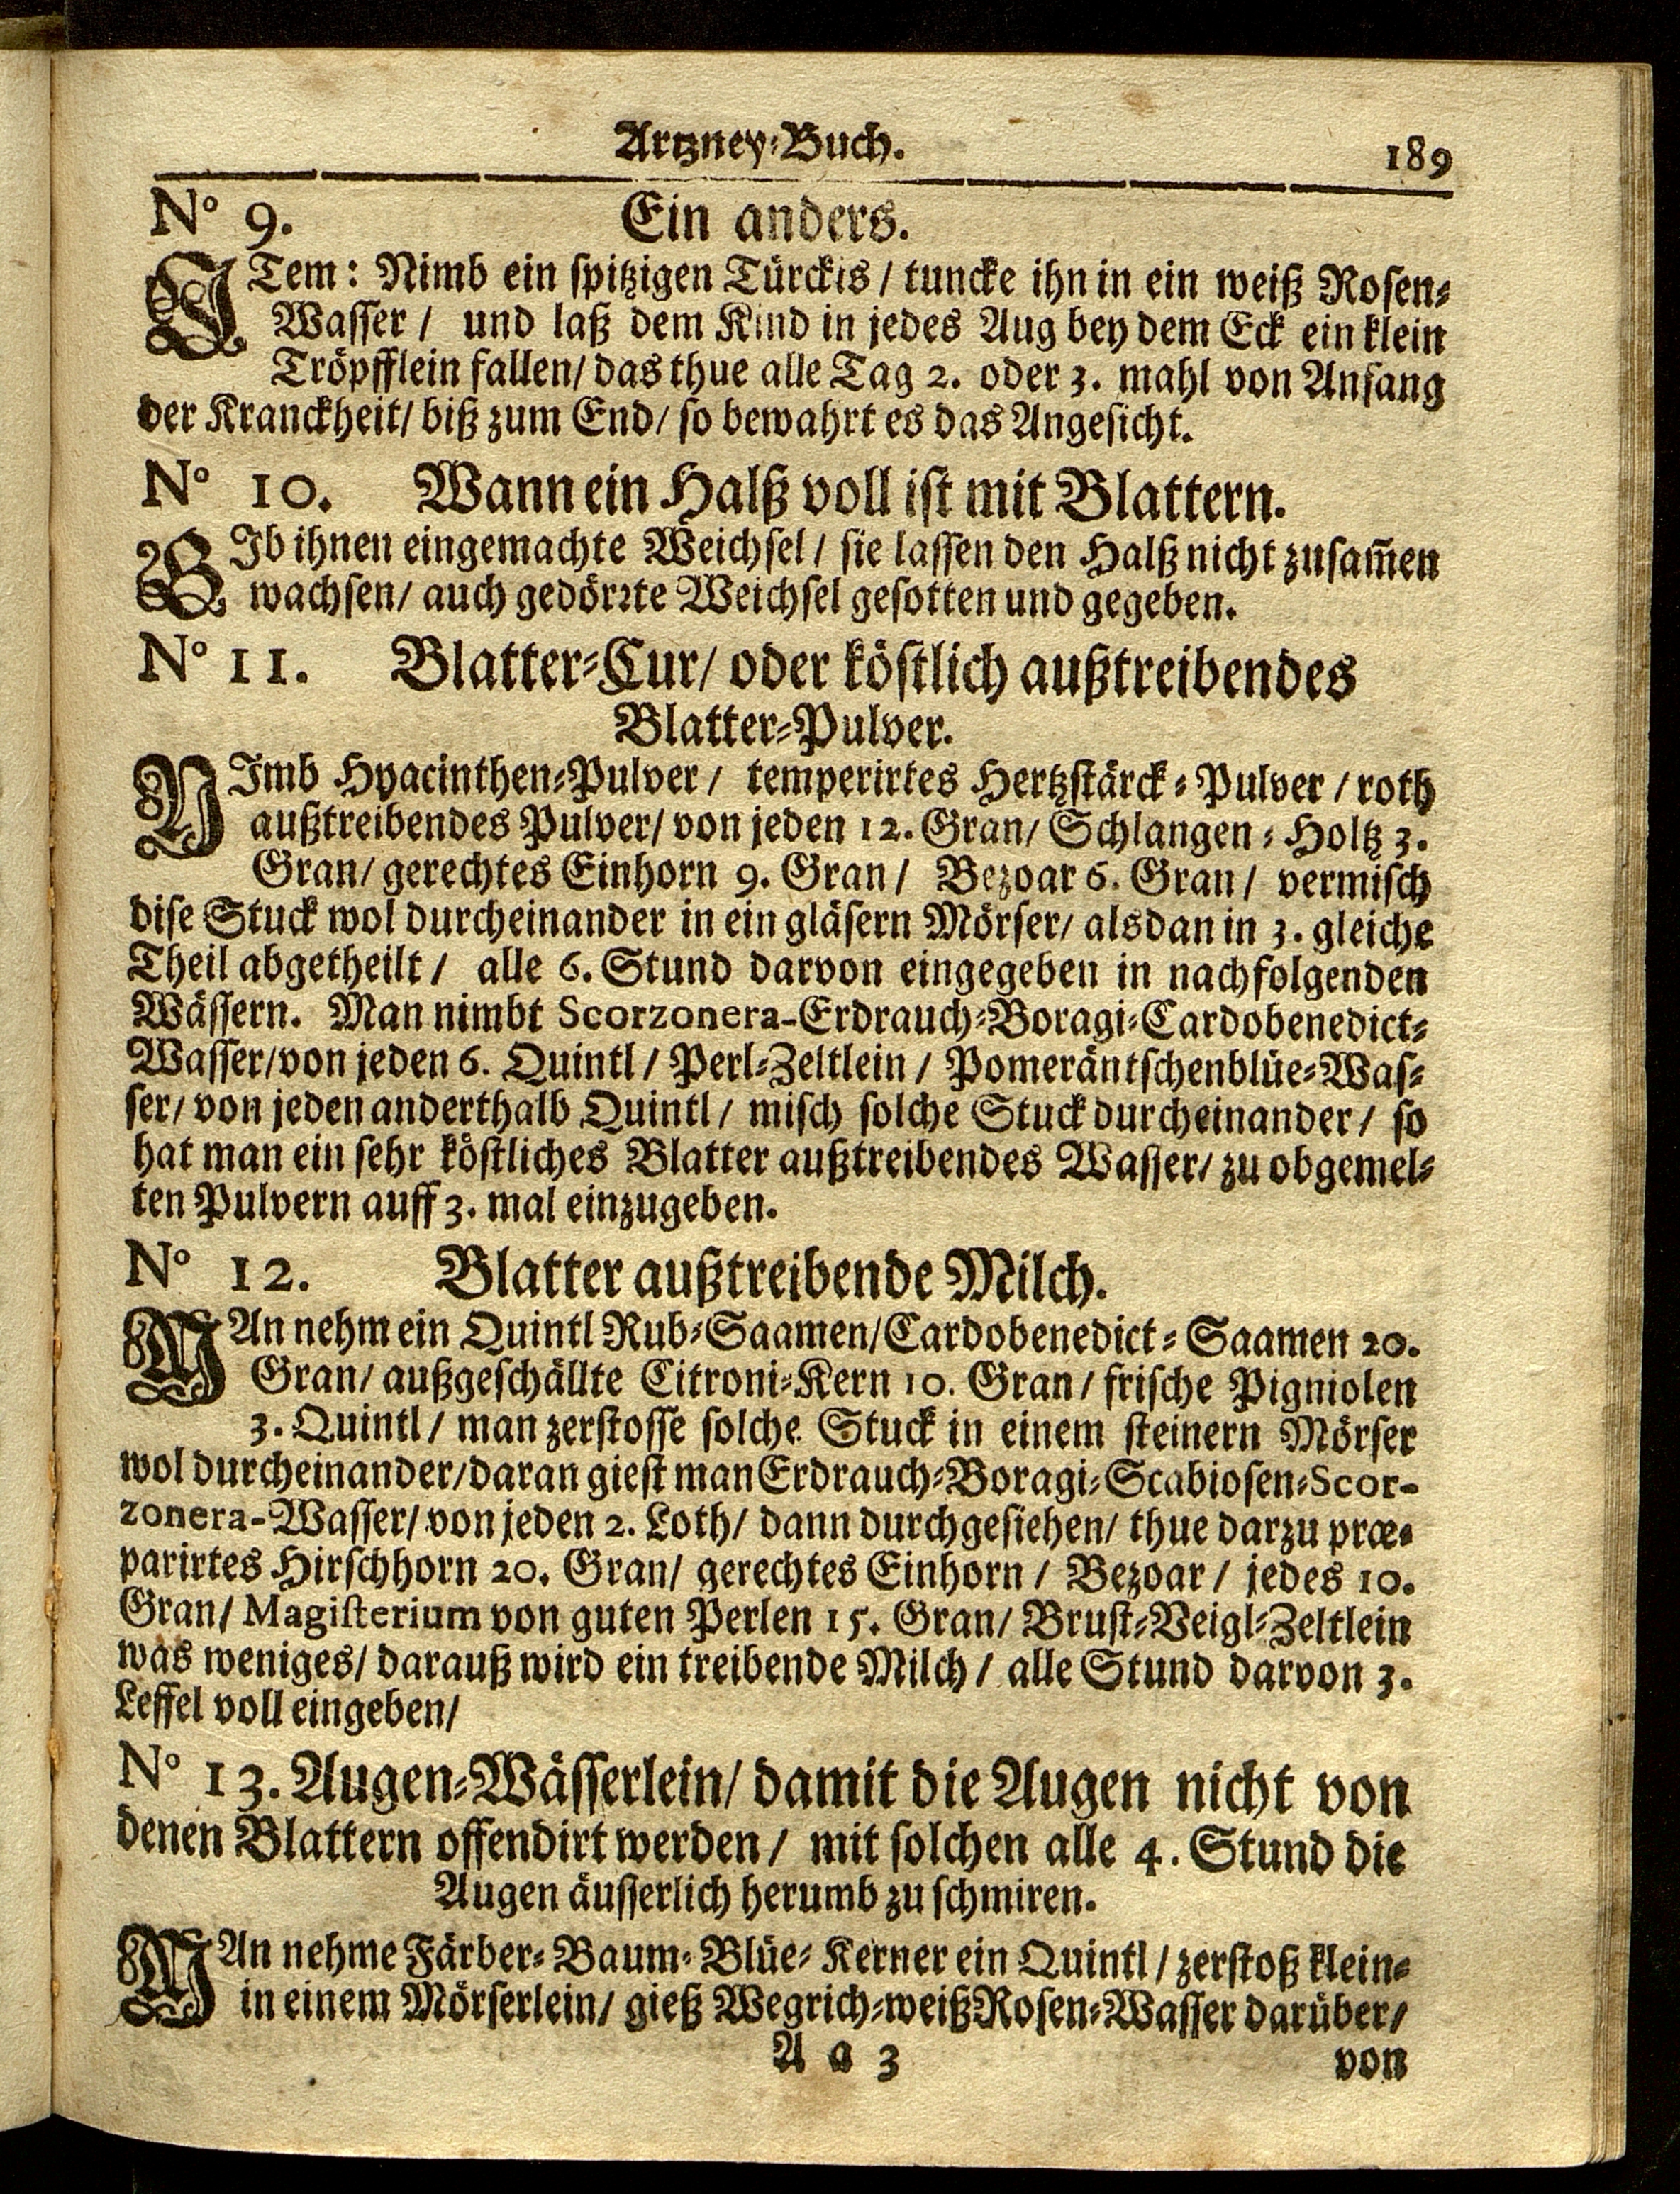 Artzney-Buch.
189
N° 9. Ein anders.
ITem: Nimb ein spitzigen Türckis / tuncke ihn in ein weiß Rosen-
Wasser / und laß dem Kind in jedes Aug bey dem Eck ein klein
Tröpfflein fallen/ das thue alle Tag 2. oder 3. mahl von Anfang
der Kranckheit/ biß zum End/ so bewahrt es das Angesicht.
N° 10. Wann ein Halß voll ist mit Blattern.
GIb ihnen eingemachte Weichsel / sie lassen den Halß nicht zusam̃en
wachsen/ auch gedörꝛte Weichsel gesotten und gegeben.
N° 11. Blatter-Cur/ oder köstlich außtreibendes
Blatter-Pulver.
NImb Hyacinthen-Pulver / temperirtes Hertzstärck-Pulver / roth
außtreibendes Pulver/ von jeden 12. Gran/ Schlangen-Holtz 3.
Gran/ gerechtes Einhorn 9. Gran / Bezoar 6. Gran / vermisch
dise Stuck wol durcheinander in ein gläsern Mörser/ alsdan in 3. gleiche
Theil abgetheilt / alle 6. Stund darvon eingegeben in nachfolgenden
Wässern. Man nimbt Scorzonera-Erdrauch-Boragi-Cardobenedict-
Wasser/von jeden 6. Quintl / Perl-Zeltlein / Pomeräntschenblüe-Was-
ser/ von jeden anderthalb Quintl / misch solche Stuck durcheinander / so
hat man ein sehr köstliches Blatter außtreibendes Wasser/ zu obgemel-
ten Pulvern auff 3. mal einzugeben.
N° 12. Blatter außtreibende Milch.
MAn nehm ein Quintl Rub-Saamen/Cardobenedict-Saamen 20.
Gran/ außgeschällte Citroni-Kern 10. Gran / frische Pigniolen
3. Quintl / man zerstosse solche Stuck in einem steinern Mörser
wol durcheinander/daran giest man Erdrauch-Boragi-Scabiosen-Scor-
zonera-Wasser/ von jeden 2. Loth/ dann durchgesiehen/ thue darzu præ-
parirtes Hirschhorn 20. Gran/ gerechtes Einhorn / Bezoar / jedes 10.
Gran/ Magisterium von guten Perlen 15. Gran/ Brust-Veigl-Zeltlein
was weniges/ darauß wird ein treibende Milch / alle Stund darvon 3.
Leffel voll eingeben/
N° 13. Augen-Wässerlein/ damit die Augen nicht von
denen Blattern offendirt werden / mit solchen alle 4. Stund die
Augen äusserlich herumb zu schmiren.
MAn nehme Färber-Baum-Blüe-Kerner ein Quintl / zerstoß klein-
in einem Mörserlein/ gieß Wegrich-weiß Rosen-Wasser darüber/
A a 3
von